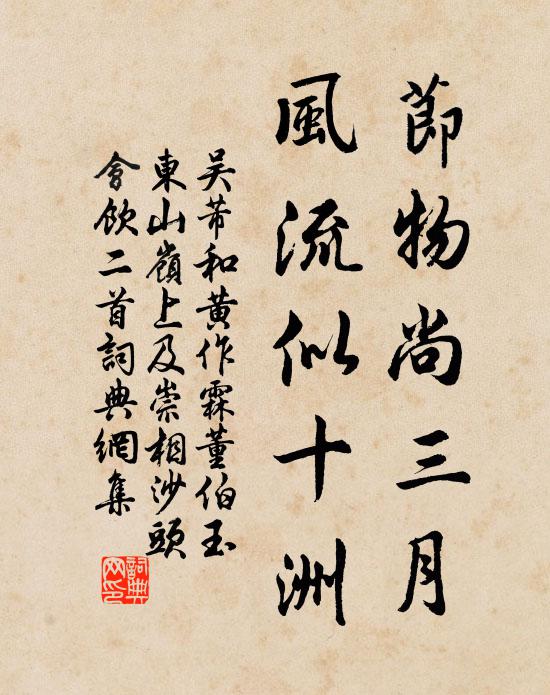 節物尚三月
風流似十洲
吴芾和黄作霖董伯玉
東山嶺上及崇相沙頭
會飲二首詞典網集
詞典
网印